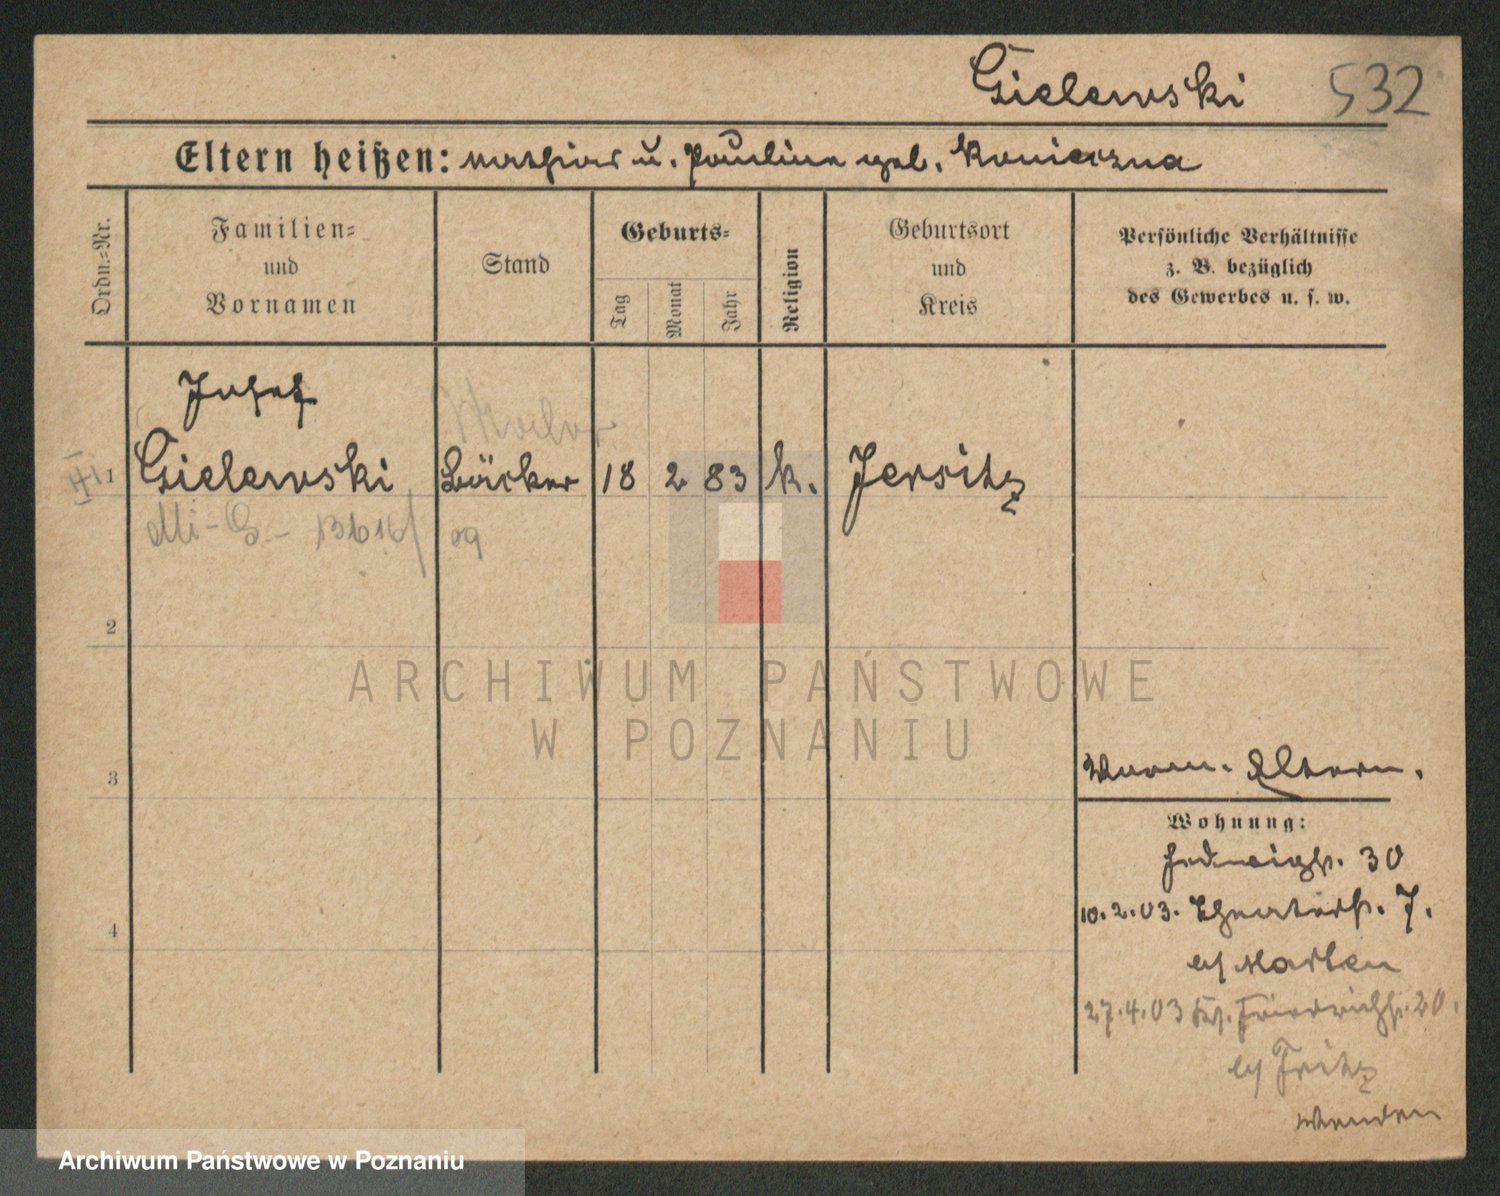 Gielewski 532
Eltern heißen: Mathias u. Pauline geb. Konieczna
Ordn.=Nr.
Familien=
und
Vornamen
Stand
Geburts=
Tag
Monat
Jahr
Religion
Geburtsort
und
Kreis
Persönliche Verhältnisse
z. B. bezüglich
des Gewerbes u. s. w.
Josef
1 Gielewski Bäcker 18 2 83 k. Jersitz
09
2
3
Eltern.
4
Wohnung:
Hedwigstr. 30
10.2.03. Theaterstr. 7.
b/
27.4.03 Friedrichstr. 20.
b/ Fritz
wenden
ARCHIWUM PAŃSTWOWE
W POZNANIU
Archiwum Państwowe w Poznaniu